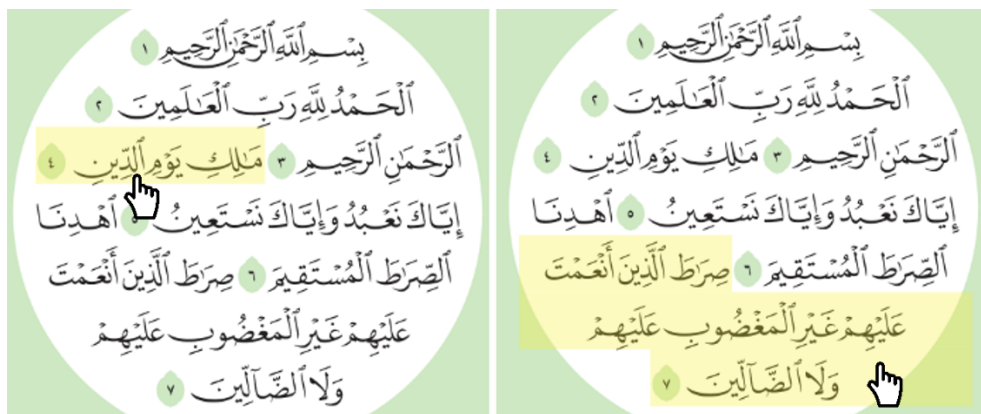 بِسْمِ ٱللَّهِ ٱلرَّحْمَٰنِ ٱلرَّحِيمِ ١
ٱلْحَمْدُ لِلَّهِ رَبِّ ٱلْعَٰلَمِينَ ٢
ٱلرَّحْمَٰنِ ٱلرَّحِيمِ ٣ مَٰلِكِ يَوْمِ ٱلدِّينِ ٤
إِيَّاكَ نَعْبُدُ وَإِيَّاكَ نَسْتَعِينُ ٥ ٱهْدِنَا
ٱلصِّرَٰطَ ٱلْمُسْتَقِيمَ ٦ صِرَٰطَ ٱلَّذِينَ أَنْعَمْتَ
عَلَيْهِمْ غَيْرِ ٱلْمَغْضُوبِ عَلَيْهِمْ
وَلَا ٱلضَّآلِّينَ ٧
بِسْمِ ٱللَّهِ ٱلرَّحْمَٰنِ ٱلرَّحِيمِ ١
ٱلْحَمْدُ لِلَّهِ رَبِّ ٱلْعَٰلَمِينَ ٢
ٱلرَّحْمَٰنِ ٱلرَّحِيمِ ٣ مَٰلِكِ يَوْمِ ٱلدِّينِ ٤
إِيَّاكَ نَعْبُدُ وَإِيَّاكَ نَسْتَعِينُ ٥ ٱهْدِنَا
ٱلصِّرَٰطَ ٱلْمُسْتَقِيمَ ٦ صِرَٰطَ ٱلَّذِينَ أَنْعَمْتَ
عَلَيْهِمْ غَيْرِ ٱلْمَغْضُوبِ عَلَيْهِمْ
وَلَا ٱلضَّآلِّينَ ٧